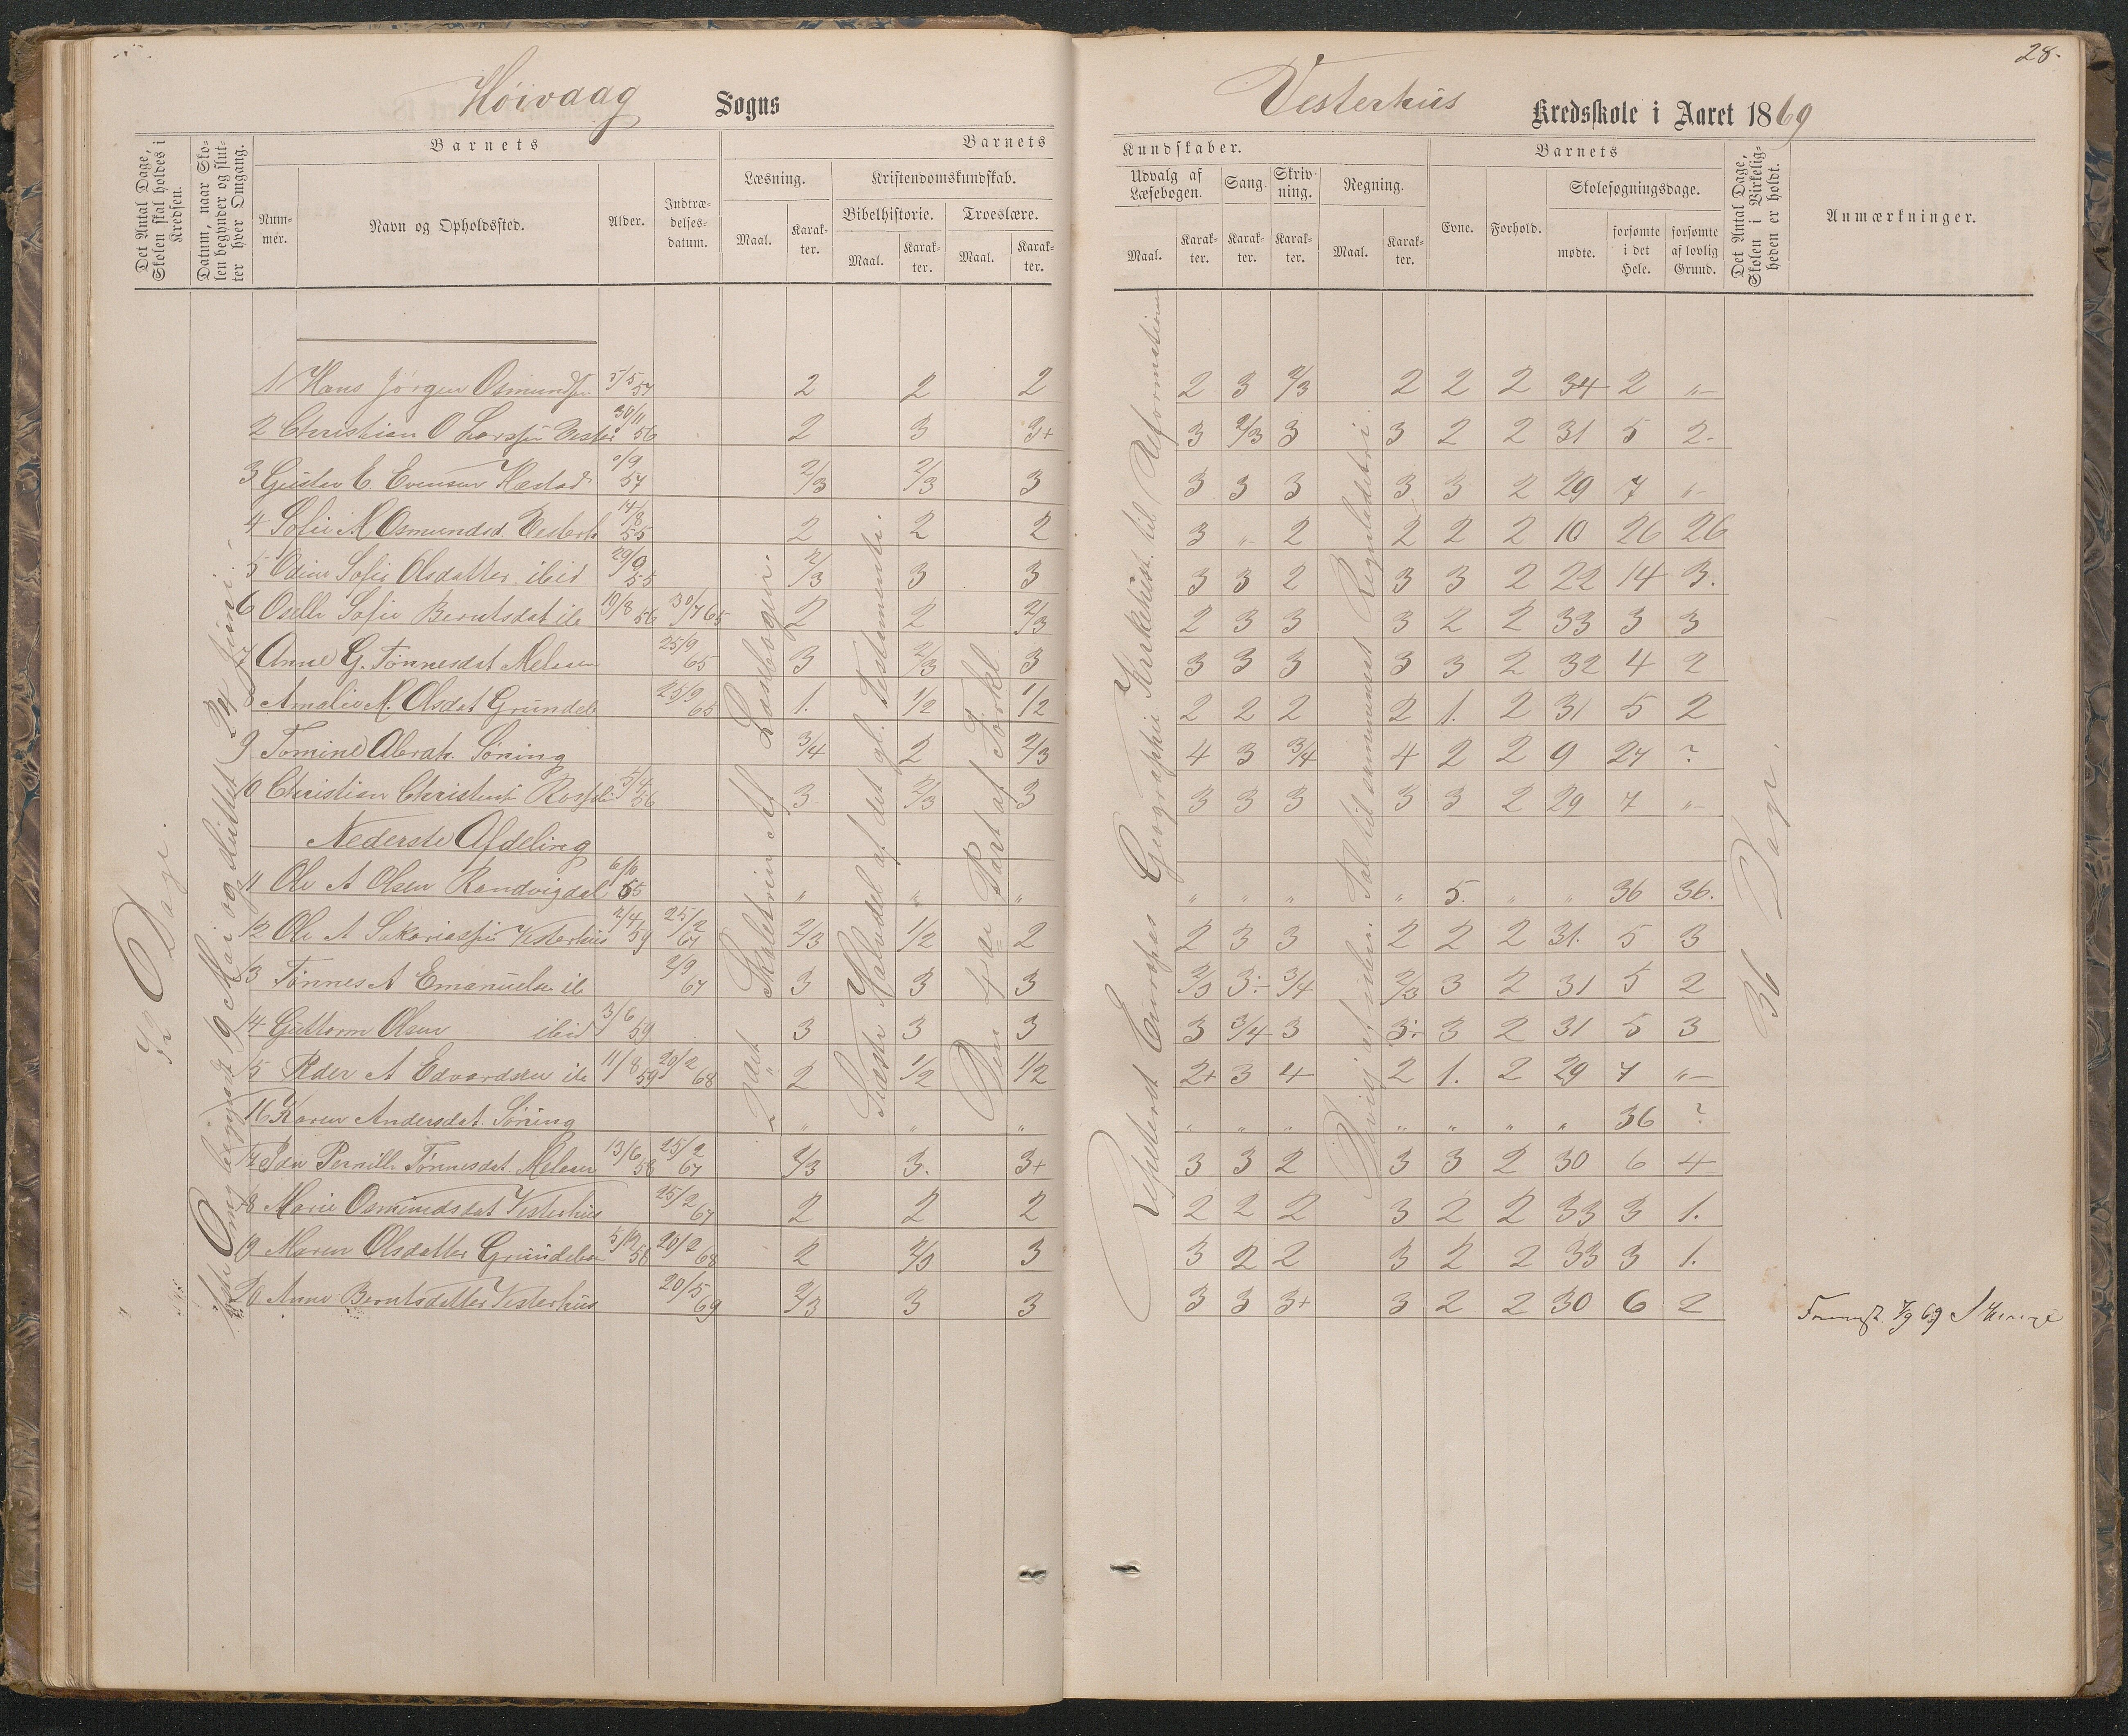 28.
Høivaag Sogns Vesterhus Kredsskole i Aaret 1869
Det Antal Dage, Skolen skal holdes i Kredsen.
Datum, naar Skolen begynder og slutter hver Omgang.
Barnets
Nummer.
Navn og Opholdssted.
Alder.
Indtrædelsesdatum.
Barnets Kundskaber.
Læsning.
Maal.
Karakter.
Kristendomskundskab.
Bibelhistorie.
Maal.
Karakter.
Troeslære.
Maal.
Karakter.
Udvalg af Læsebogen.
Maal.
Karakter.
Sang.
Karakter.
Skrivning.
Karakter.
Regning.
Maal.
Karakter.
Barnets
Evne.
Forhold.
Skolesøgningsdage.
mødte.
forsømte i det Hele.
forsømte af lovlig Grund.
Det Antal Dage, Skolen i Virkeligheden er holdt.
Anmærkninger.
Dage.
Omg. begyndt 19 Mai og sluttet 24 Juni.
2 det Skoletrin af Læsebogen.
Sidste Halvdel af det gl. Testamente.
Den 4de Part af Forkl.
Repeteret Europas Geographie Kirkehist. til Reformationen
Øvelse af Tal til Reguladetri.
36 Dage.
1 Hans Jørgen Osmundsen 5/5 57 2 2 2 2 3 2/3 2 2 2 34 2 "
2 Christian O Larssen Vester 30/11 56 2 3 3+ 3 2/3 3 3 2 2 31 5 2
3 Gustav E. Evensen Hæstad /9 57 2/3 2/3 3 3 3 3 3 3 2 29 7 "
4 Sofie M Osmundsd. Vesterh 14/8 55 2 2 2 3 " 2 2 2 2 10 26 26
5 Odine Sofie Olsdatter ibid 29/9 55 2/3 3 3 3 3 2 3 3 2 22 14 3.
6 Oselle Sofie Berntsdat ib 19/8 56 30/7 65 2 2 2/3 2 3 3 3 2 2 33 3 3
7 Anne G. Tønnesdat Meleaen 25/9 65 3 2/3 3 3 3 3 3 3 2 32 4 2
8 Amalie M. Olsdat Grundel 25/9 65 1. 1/2 1/2 2 2 2 2 1. 2 31 5 2
9 Tomine Abrah. Søning 3/4 2 2/3 4 3 3/4 4 2 2 9 27 ?
10 Christian Christens 5/4 56 3 2/3 3 3 3 3 3 3 2 29 7 "
Nederste Afdeling
11 Ole A Olsen Randvigdal 6/10 55 " " " " " " " 5. " " 36 36.
12 Ole A Sakariassen Vesterhus 2/4 59 25/2 67 2/3 1/2 2 2 3 3 2 2 2 31. 5 3
13 Tønnes A Emanuelsen ib 2/9 67 3 3 3 2/3 3÷ 3/4 2/3 3 2 31 5 2
14 Guttorm Olsen ibid 3/6 59 3 3 3 3 3/4 3 3÷ 3 2 31 5 3
15 Peder A Edvardsen ib 11/8 59 20/2 68 2 1/2 1/2 2+ 3 4 2 1. 2 29 7 "
16 Karen Andersdat. Søning " " " " " " " " " " 36 ?
17 Ida Pernille Tønnesdat Meleaen 13/6 58 25/2 67 2/3 3. 3+ 3 3 2 3 3 2 30 6 4
18 Marie Osmundsdat Vesterhus 25/2 67 2 2 2 2 2 2 3 2 2 33 3 1.
19 Maren Olsdatter Grundel 5/12 58 20/2 68 2 2/3 3 3 2 2 3 2 2 33 3 1.
20 Anne Berntsdatter Vesterhus 20/5 69 2/3 3 3 3 3 3+ 3 2 2 30 6 2